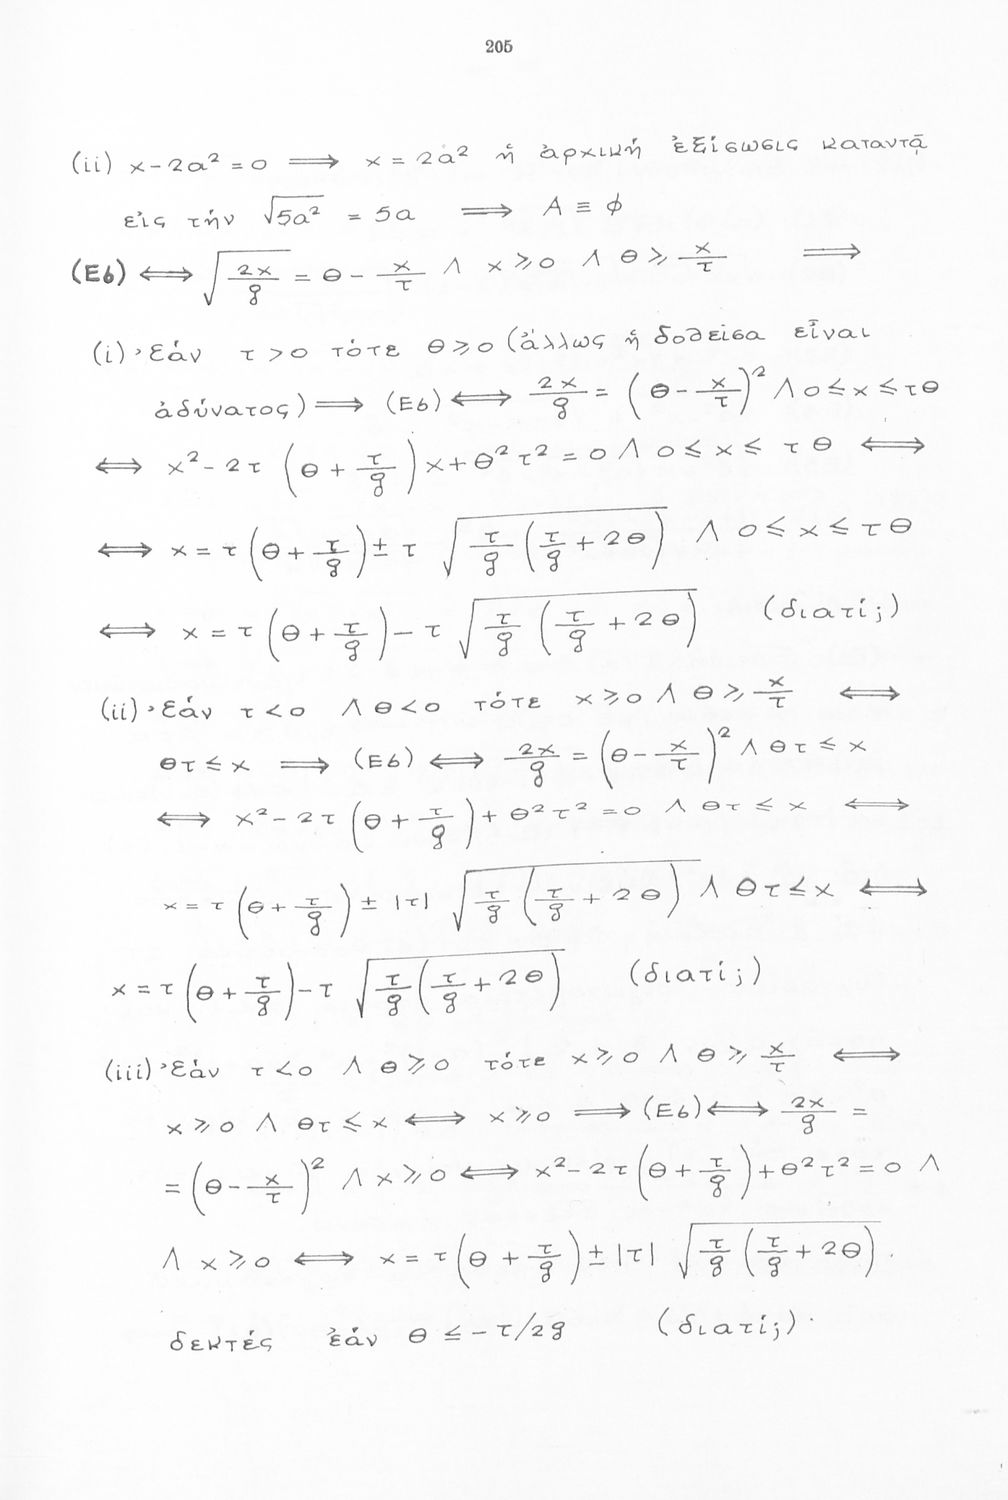 205
(ii) x-2a² = 0 ⟹ x = 2a² ἡ ἀρχική ἐξίσωσις καταντᾶ
εἰς τήν √(5a²) = 5a ⟹ A ≡ ϕ
(E6) ⟺ √(2x/g) = θ - x/τ ∧ x ⩾ 0 ∧ θ ⩾ x/τ ⟹
(i) Ἐάν τ > 0 τότε θ ⩾ 0 (ἄλλως ἡ δοθεῖσα εἶναι
ἀδύνατος) ⟹ (E6) ⟺ 2x/g = (θ - x/τ)² ∧ 0 ≤ x ≤ τθ
⟺ x² - 2τ (θ + τ/g) x + θ²τ² = 0 ∧ 0 ≤ x ≤ τθ ⟺
⟺ x = τ (θ + τ/g) ± τ √(τ/g (τ/g + 2θ)) ∧ 0 ≤ x ≤ τθ
⟺ x = τ (θ + τ/g) - τ √(τ/g (τ/g + 2θ)) (διατί;)
(ii) Ἐάν τ < 0 ∧ θ < 0 τότε x ⩾ 0 ∧ θ ⩾ x/τ ⟺
θτ ≤ x ⟹ (E6) ⟺ 2x/g = (θ - x/τ)² ∧ θτ ≤ x
⟺ x² - 2τ (θ + τ/g) + θ²τ² = 0 ∧ θτ ≤ x ⟺
x = τ (θ + τ/g) ± |τ| √(τ/g (τ/g + 2θ)) ∧ θτ ≤ x ⟺
x = τ (θ + τ/g) - τ √(τ/g (τ/g + 2θ)) (διατί;)
(iii) Ἐάν τ < 0 ∧ θ ⩾ 0 τότε x ⩾ 0 ∧ θ ⩾ x/τ ⟺
x ⩾ 0 ∧ θτ ≤ x ⟺ x ⩾ 0 ⟹ (E6) ⟺ 2x/g =
= (θ - x/τ)² ∧ x ⩾ 0 ⟺ x² - 2τ (θ + τ/g) + θ²τ² = 0 ∧
∧ x ⩾ 0 ⟺ x = τ (θ + τ/g) ± |τ| √(τ/g (τ/g + 2θ)).
δεκτές ἐάν θ ≤ - τ/2g (διατί;).